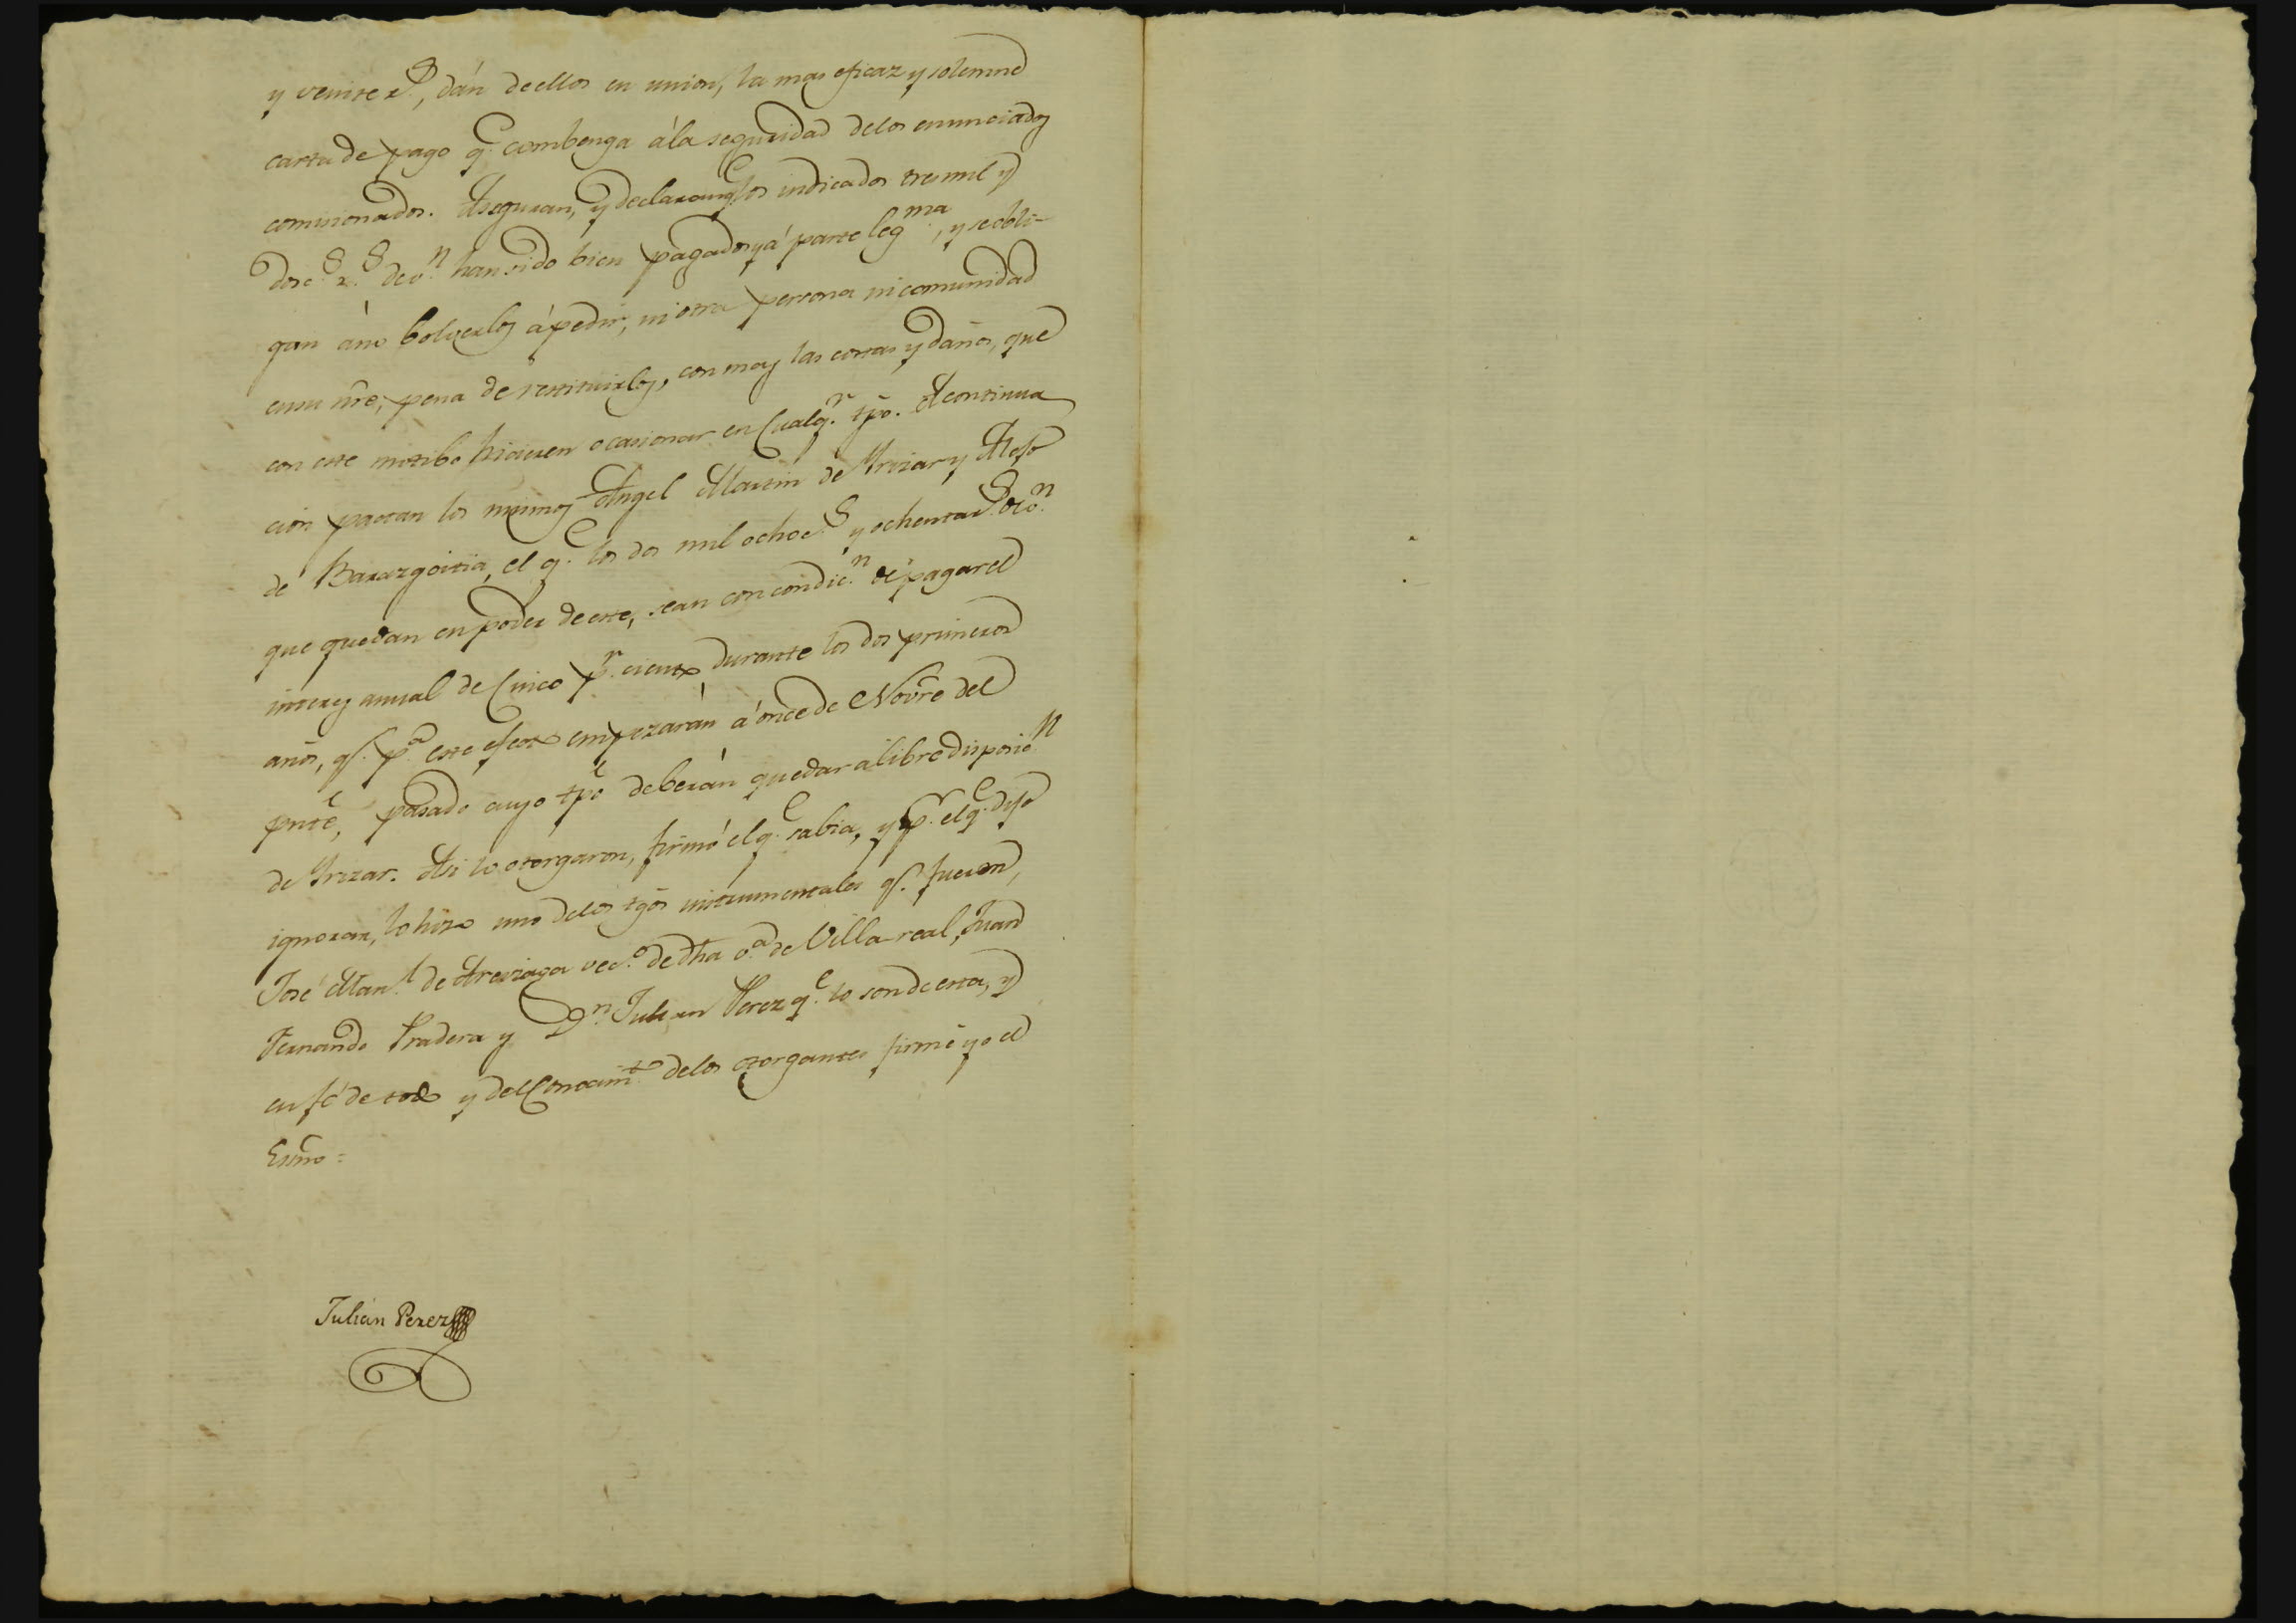 y veinte r.s, dán de ellos en union, la mas eficaz y solemne
carta de pago q.e combenga á la seguridad delos enunciados
comisionados. Aseguran, y declaran q.e los indicados tres mil y
dosc.s r.s de v.n han sido bien pagados y á parte leg.ma, y se obli-
gan áno bolverlos á pedir, ni otra persona ni comunidad
en su nre, pena de restituirlos, con mas las costas y daños, que
con este motibo hicieren ocasionar en Cualq.r tpo. A continua
cion pactan los mismos Angel Martin de Yrizar y Alejo
de Barazgoitia, el q.e los dos mil ochoc.s y ochenta r.s de v.n
que quedan en poder de este, sean con condic.n de pagar el
interes anual de Cinco p.r ciento durante los dos primeros
años, q.e p.a este efecto empezarán á once de Novre del
pnte, pasado cuyo tpo deberán quedar a libre disposic.n
de Yrizar. Asi lo otorgaron, firmó el q.e sabia, y p.r el q.e dijo
ignorar, lo hizo uno delos tgos instrumentales q.e fueron,
José Man.l de Areizaga vec.o de dha v.a de Villa-real, Juan
Fernando Pradera y D.n Julian Perez q.e lo son de esta, y
en fé de todo y del Conocim.to delos otorgantes firmé yo el
Esno =
Julian Perez